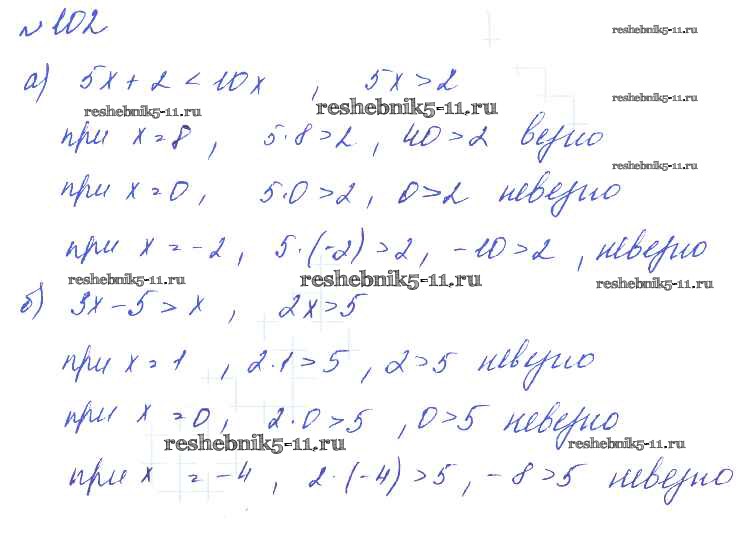 №102
reshebnik5-11.ru
а) 5x + 2 < 10x , 5x > 2
reshebnik5-11.ru
reshebnik5-11.ru reshebnik5-11.ru
при x = 8 , 5·8 > 2 , 40 > 2 верно
reshebnik5-11.ru
при x = 0 , 5·0 > 2 , 0 > 2 неверно
при x = -2 , 5·(-2) > 2 , -10 > 2 , неверно
reshebnik5-11.ru reshebnik5-11.ru reshebnik5-11.ru
б) 3x - 5 > x , 2x > 5
при x = 1 , 2·1 > 5 , 2 > 5 неверно
при x = 0 , 2·0 > 5 , 0 > 5 неверно
reshebnik5-11.ru reshebnik5-11.ru
при x = -4 , 2·(-4) > 5 , -8 > 5 неверно